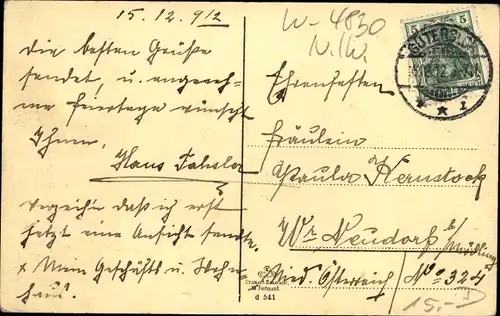 15.12.912
die besten Grüße
sendet, u. angeneh-
me Feiertage wünscht
Ihnen,
Hans
verzeih'n daß ich erst
jetzt eine Ansicht sende.
x Mein Geschäfts u. Wohn-
haus.
W-4830
N.W.
5 5
GÜTERSLOH
* * 1
Ehrenfesten
Fräulein
Paula Kernstock
Wr Neudorf b/
Mödling
Nied. Österreich No 324
15.-
d 541